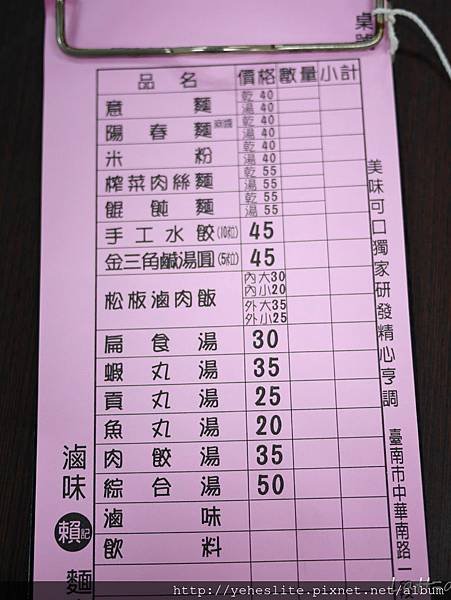 桌號
品名 價格 數量 小計
意麵 乾 40 湯 40
陽春麵 麻醬 乾 40 湯 40
米粉 乾 40 湯 40
榨菜肉絲麵 乾 55 湯 55
餛飩麵 乾 55 湯 55
手工水餃(10粒) 45
金三角鹹湯圓(5粒) 45
松板滷肉飯 內大30 內小20 外大35 外小25
扁食湯 30
蝦丸湯 35
貢丸湯 25
魚丸湯 20
肉餃湯 35
綜合湯 50
滷味
飲料
美味可口獨家研發精心亨調
臺南市中華南路一
滷味 賴記 麵
http://yeheslite.pixnet.net/album